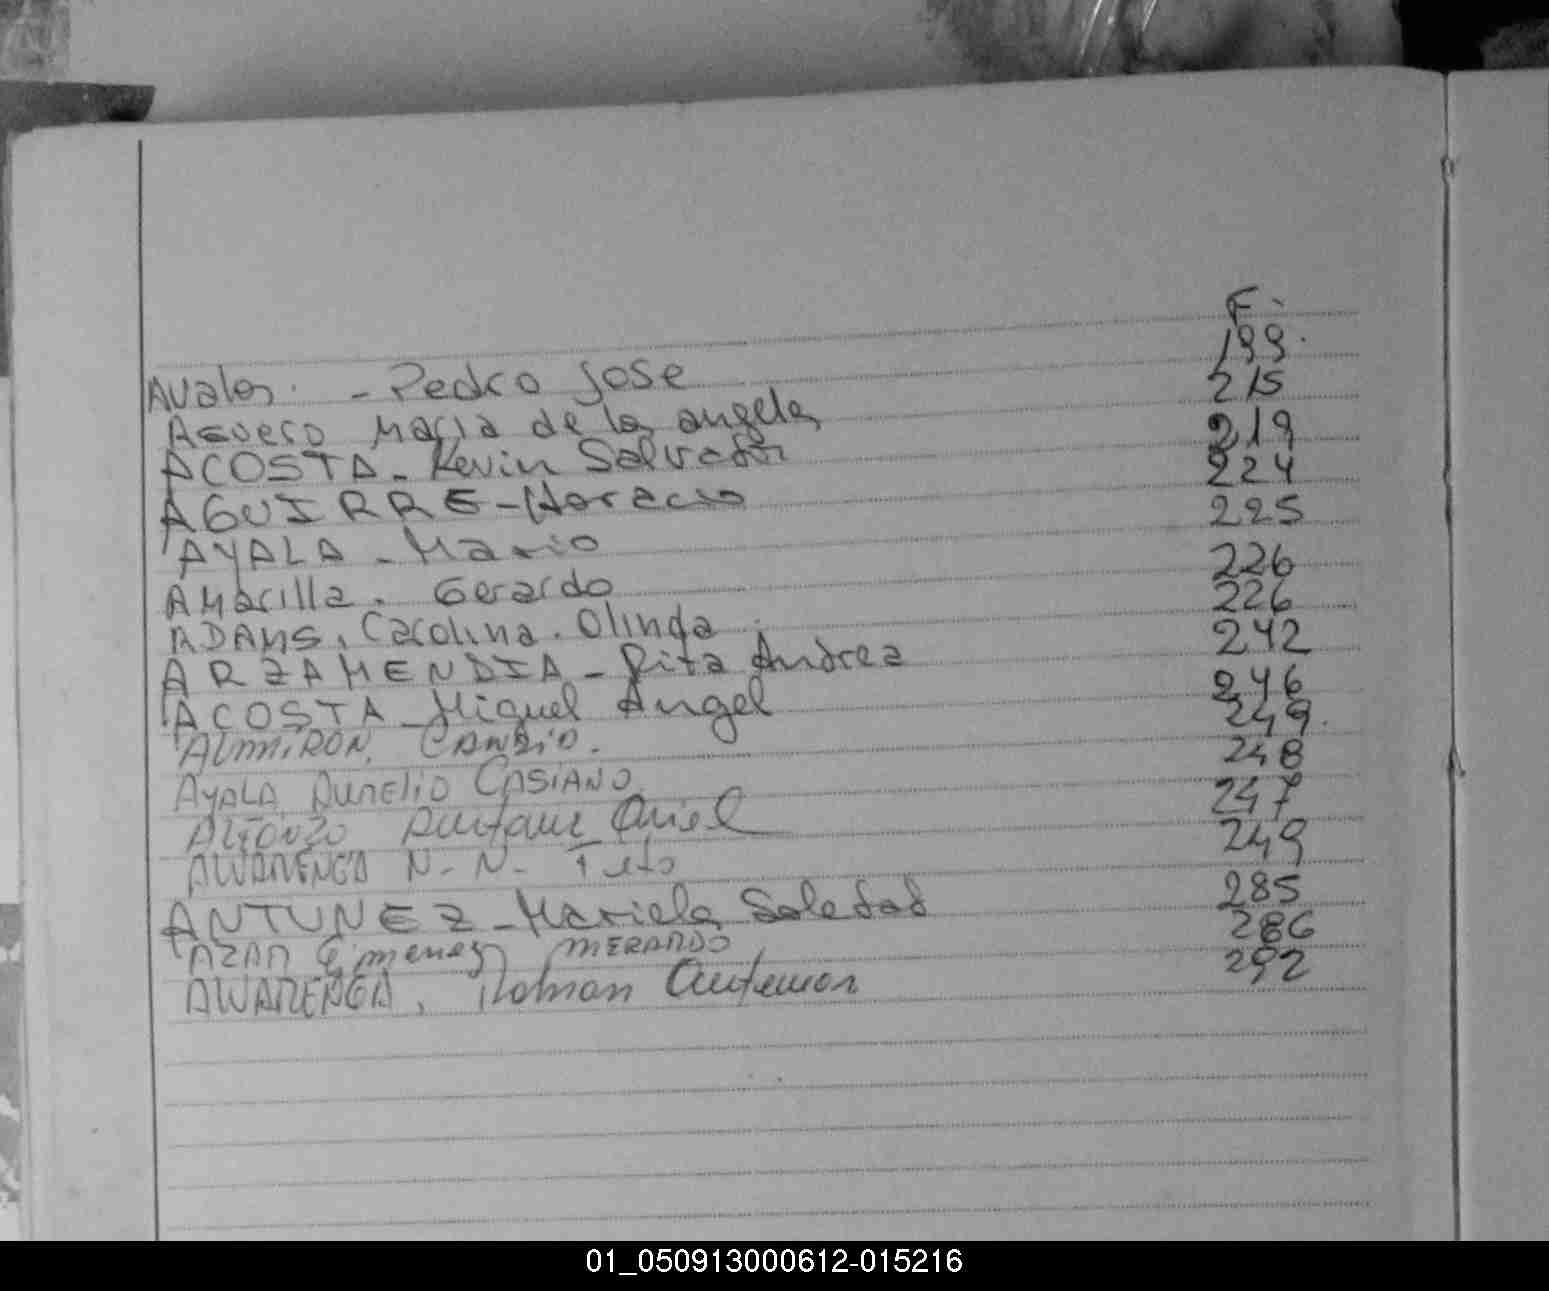 F.
Avalos. - Pedro Jose 199.
AGUERO Maria de los angeles 215
ACOSTA - Kevin Salvador 219
AGUIRRE - Horacio 224
AYALA - Mario 225
AMarilla. Gerardo 226
ADAMS. Carolina. Olinda 226
ARZAMENDIA - Rita Andrea 242
ACOSTA - Miguel Angel 246
ALMIRON, CANDIO. 249.
AYALA AURELIO CASIANO 248
ALFONZO Ariel 247
ALVARENGA N. N. Feto 249
ANTUNEZ - Mariela Soledad 285
AZAR Gimenez MERARDO 286
ALVARENGA, Roman 292
01_050913000612-015216